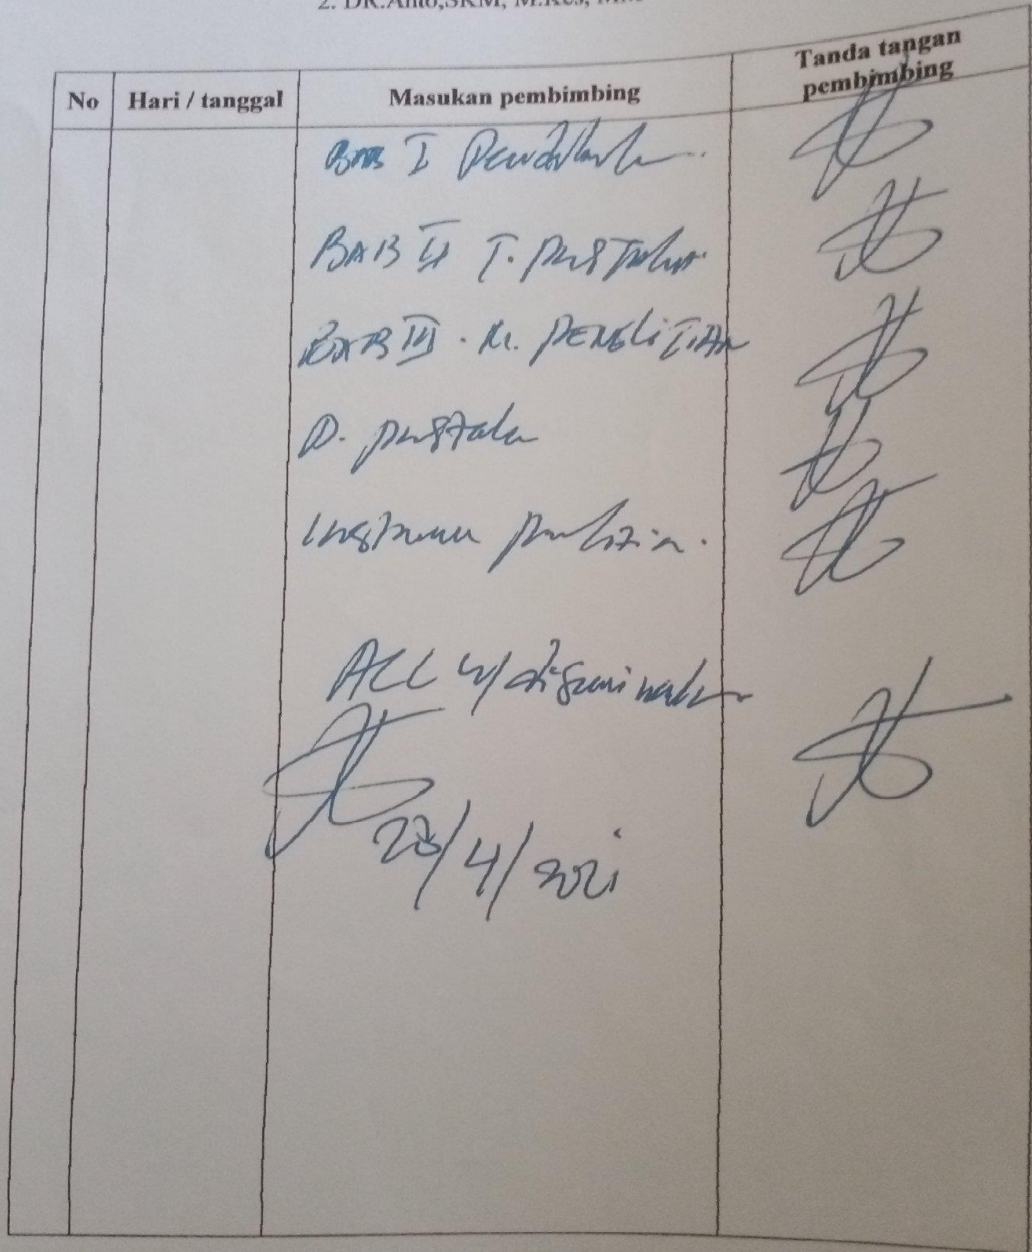 2. DR.Anto,SKM, M.Kes,
No Hari / tanggal Masukan pembimbing Tanda tangan pembimbing
BAB I Pendahulu
BAB II T. pustaka
BAB III. M. PENELITIAN
D. pustaka
Instrumen penelitian.
ACC u/ diseminarkan
4/2021